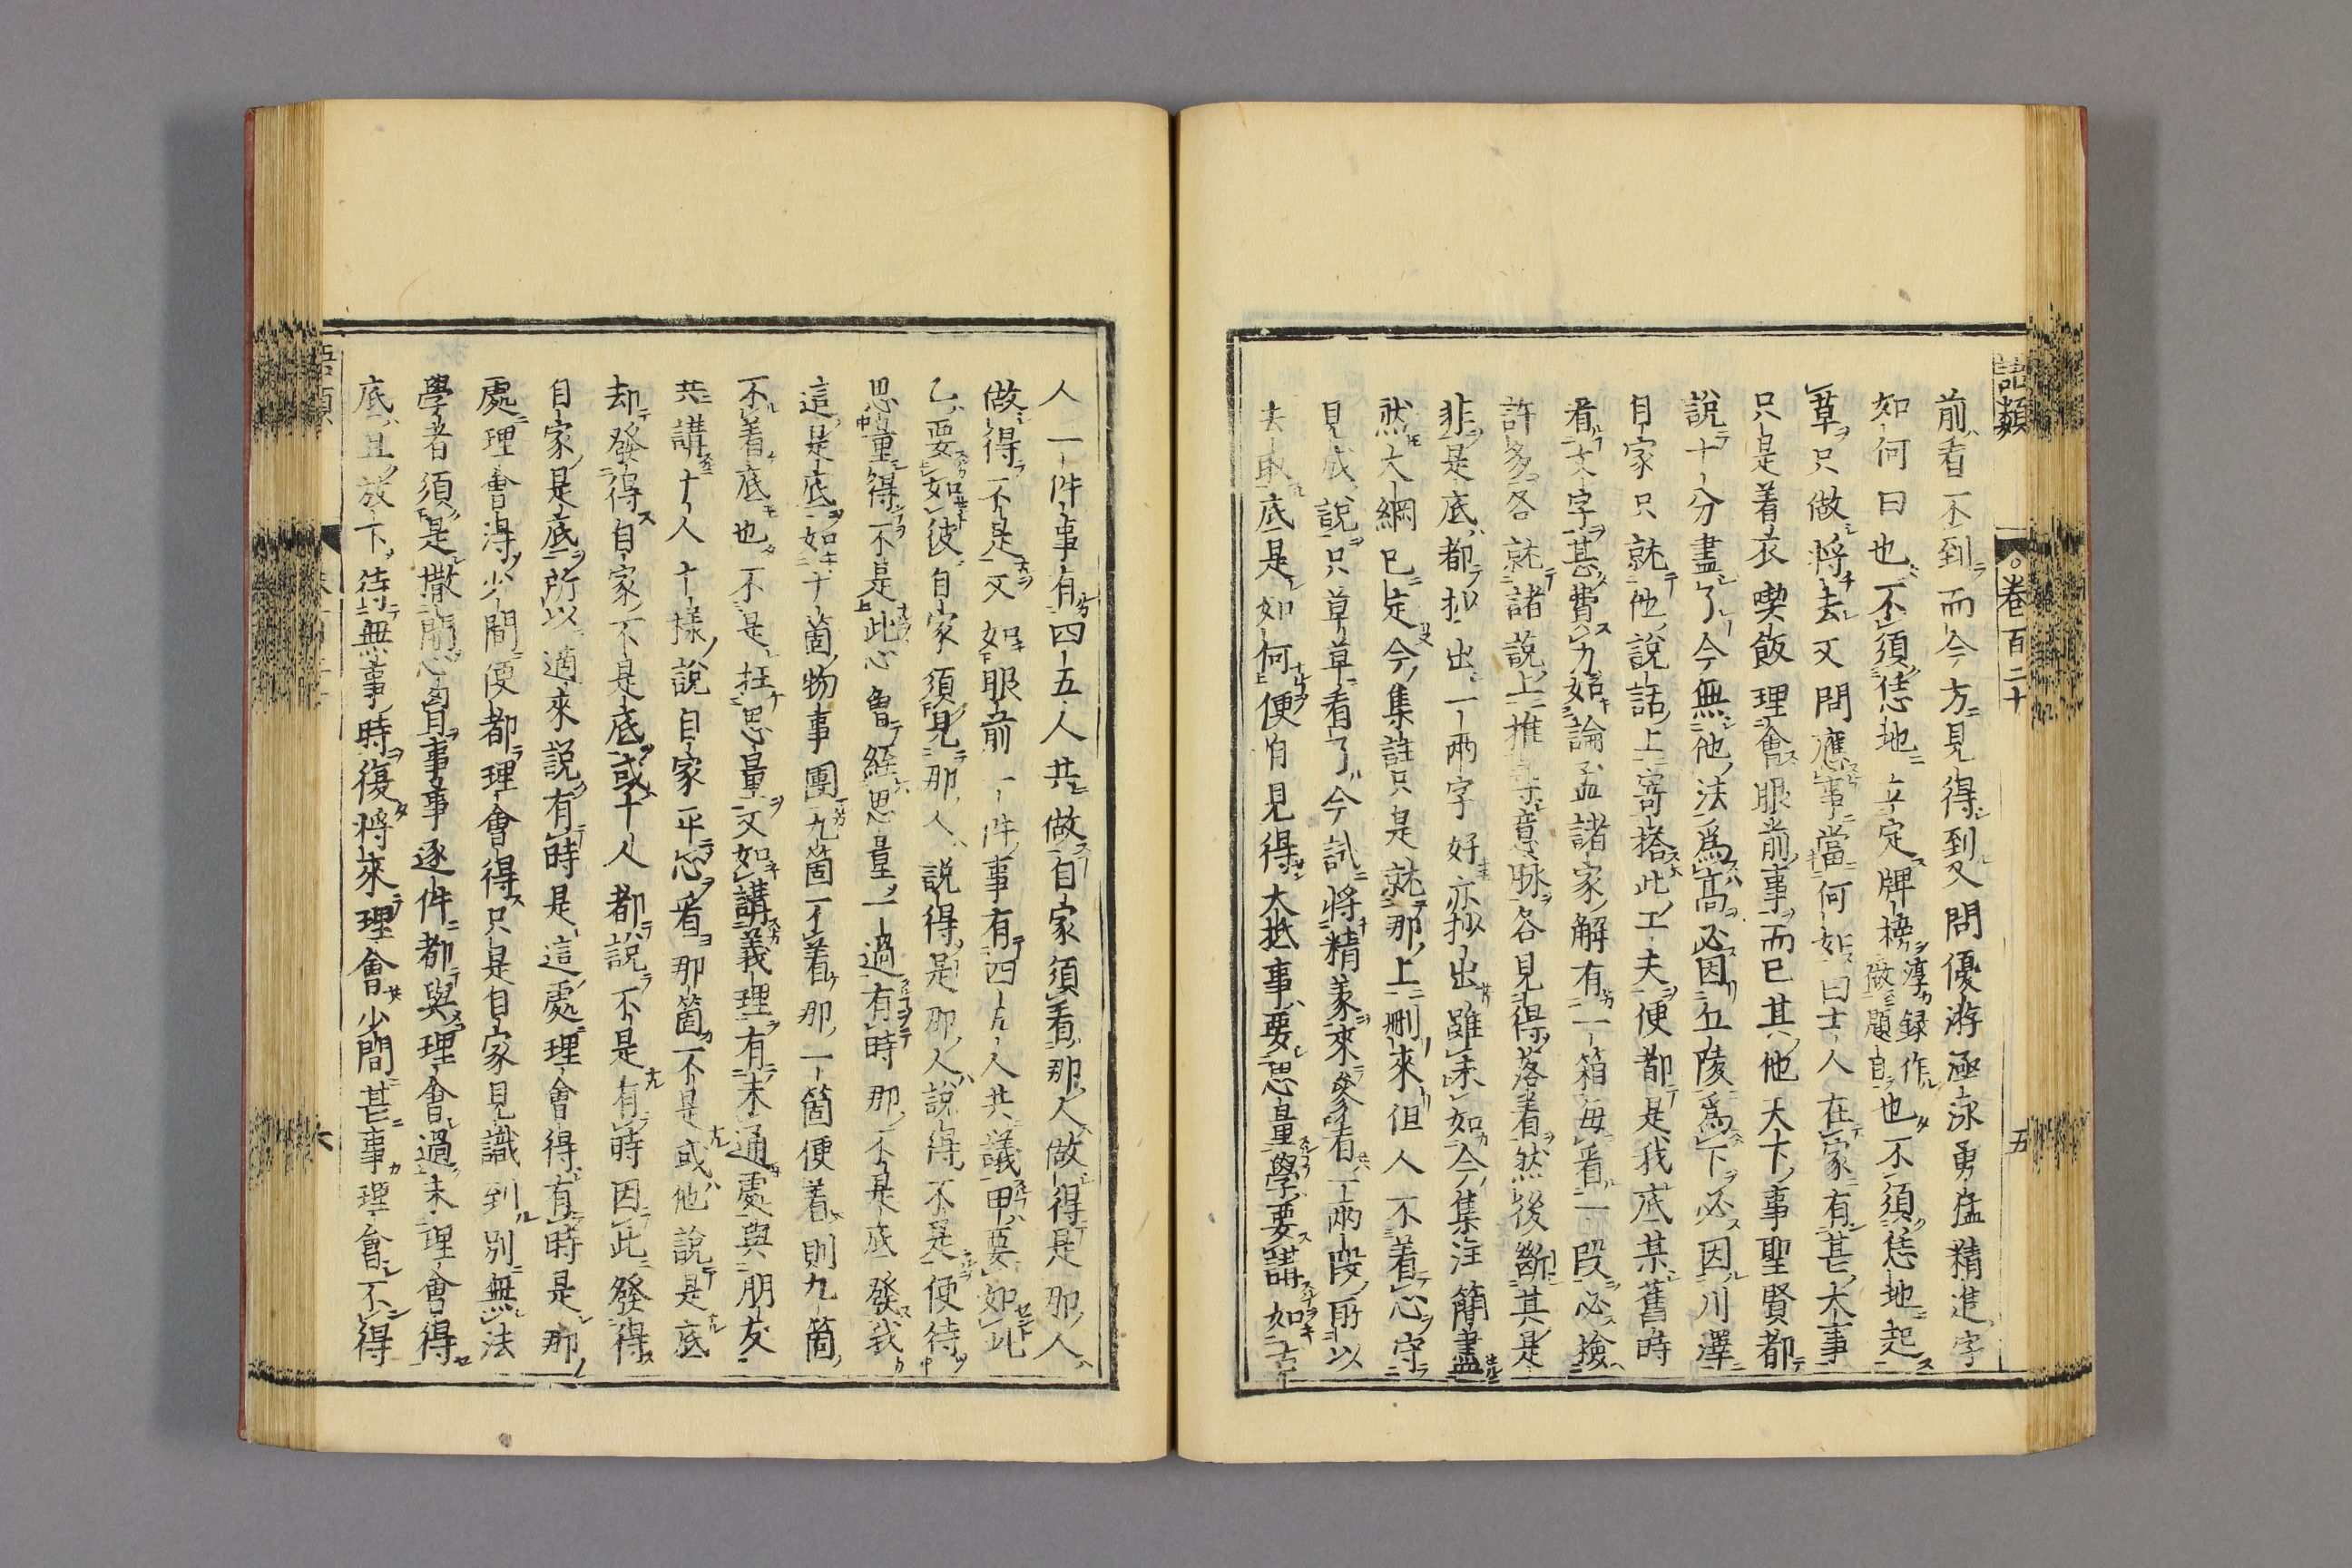 語類
卷百二十
五
前看不到而今方見得到又問優游涵泳勇猛精進字
如何曰也不須恁地立定牌榜淳録作做題目也不須恁地起
草只做將去又問應事當何如曰士人在家有甚大事
只是着衣喫飯理會眼前事而已其他天下事聖賢都
說十分盡了今無他法爲高必因丘陵爲下必因川澤
自家只就他說話上寄搭些工夫便都是我底某舊時
看文字甚費力如論孟諸家解有一箱每看一段必撿
許多各就諸說上推尋意脉各見得落着然後斷其是
非是底都抄出一兩字好亦抄出雖未如今集注簡盡
然大綱已定今集註只是就那上删來但人不着心守
見成說只草草看了今試將精義來參看一兩段所以
去取底是如何便自見得大抵事要思量學要講如古
人一件事有四五人共做自家須看那人做得是那人
做得不是又如眼前一件事有四五人共議甲要如此
乙要如彼自家須見那人說得是那人說得不是便待
思量得不是此心曾經思量一過有時那不是底發我
這是底如十箇物事團九箇不着那一箇便着則九箇
不着底也不是枉思量又如講義理有未通處與朋友
共講十人十樣說自家平心看那箇不是或他說是底
却發得自家不是底或十人都說不是有時因此發得
自家是底所以適來說有時是這處理會得有時是那
處理會得少間便都理會得只是自家見識到別無法
學者須是撒開心胷事事逐件都與理會過未理會得
底且放下待無事時復將來理會少間甚事理會不得
語類
六